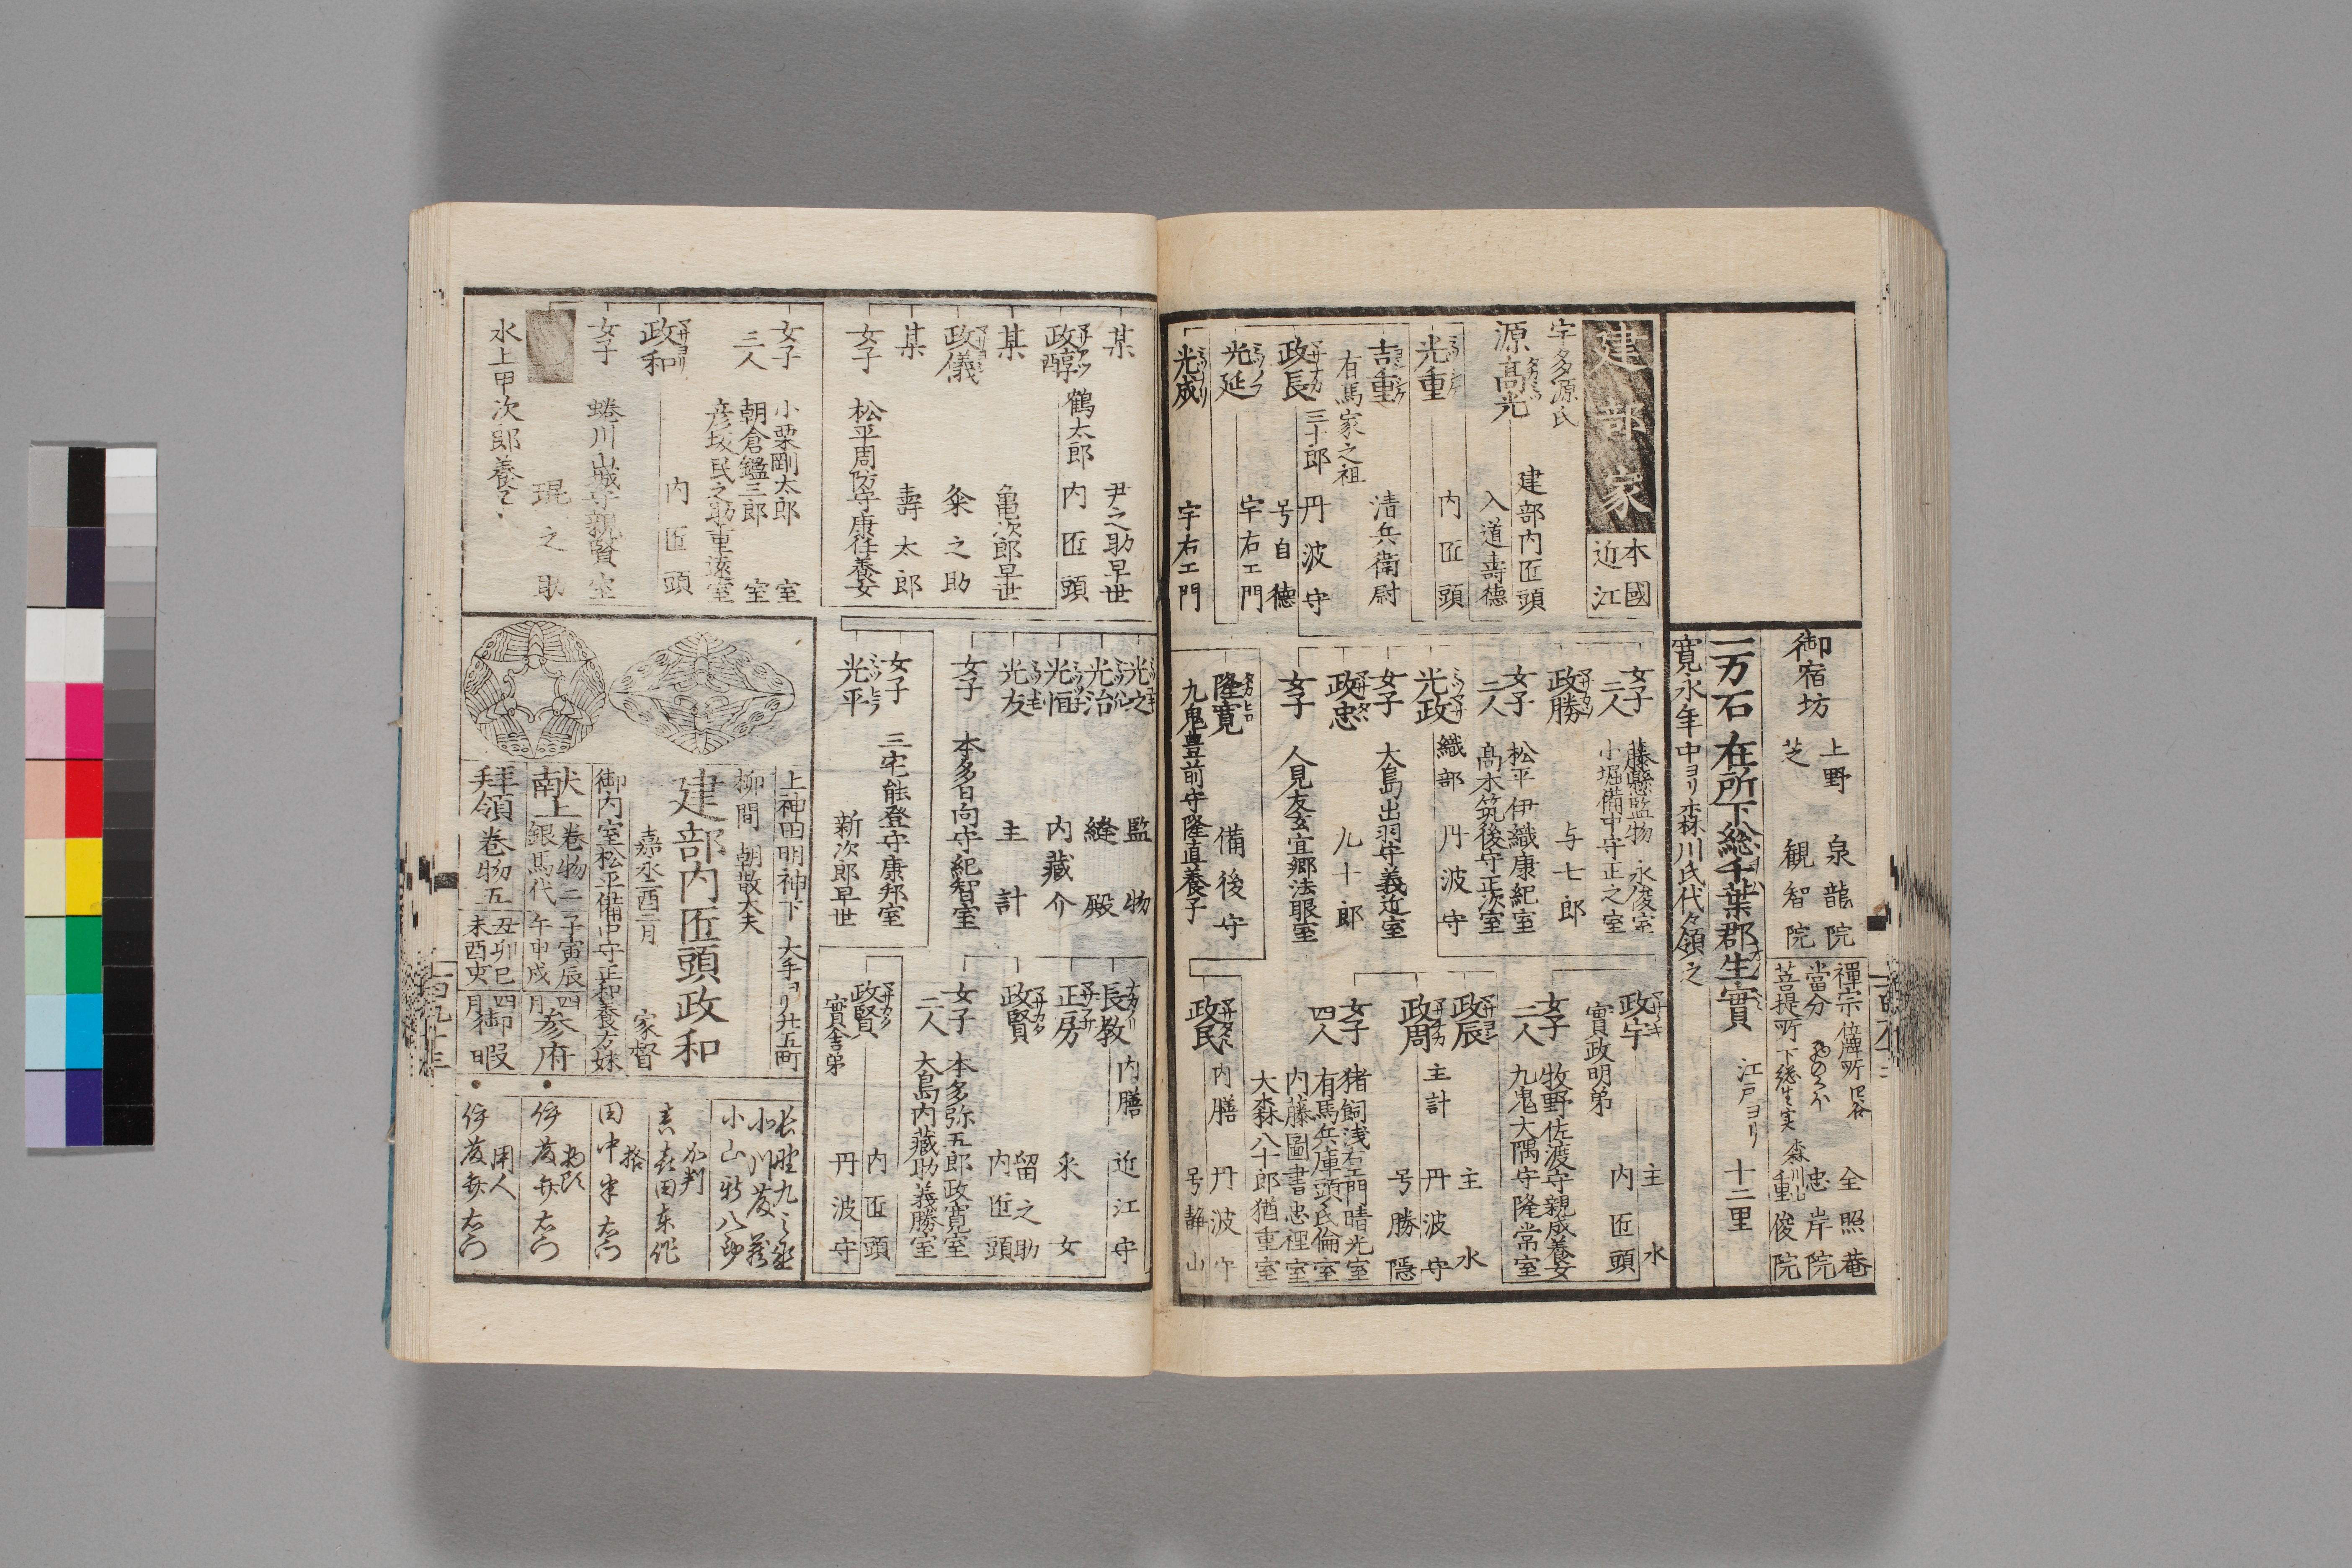 御宿坊
上野
泉龍院
芝
観智院
禪宗
位牌所
全照菴
當分
忠岸院
菩提所
下総生実
森川山
重俊院
一万石
在所下総千葉郡生實
江戸ヨリ
十二里
寛永年中ヨリ森川氏代々領之
建部家
本國
近江
宇多源氏
源高光
建部内匠頭
入道壽德
光重
内匠頭
吉重
清兵衛尉
有馬家之祖
政長
三十郎
丹波守
号自德
光延
宇右エ門
光成
宇右エ門
女子
二人
藤懸監物永俊室
小堀備中守正之室
政勝
与七郎
女子
二人
松平伊織康紀室
高木筑後守正次室
光政
織部
丹波守
女子
大島出羽守義近室
政忠
九十郎
女子
人見友玄宜郷法眼室
隆寛
備後守
九鬼豊前守隆直養子
政宇
主水
内匠頭
實政明弟
女子
二人
牧野佐渡守親成養女
九鬼大隅守隆常室
政辰
主水
政周
主計
丹波守
号勝隠
女子
四人
猪飼浅右エ門晴光室
有馬兵庫頭氏倫室
内藤圖書忠裡室
大森八十郎猶重室
政民
内膳
丹波守
号静山
某
尹之助早世
政醇
鶴太郎
内匠頭
某
亀次郎早世
政儀
粂之助
某
壽太郎
女子
松平周防守康任養女
女子
三人
小栗剛太郎室
朝倉鑑三郎室
彦坂民之助重遠室
政和
内匠頭
女子
蜷川山城守親賢室
琨之助
水上甲次郎養子
光之
監物
光治
縫殿
光恒
内藏介
光友
主計
女子
本多日向守紀智室
女子
三宅能登守康邦室
光平
新次郎早世
長教
内膳
近江守
正房
采女
政賢
留之助
内匠頭
女子
二人
本多弥五郎政寛室
大島内藏助義勝室
政賢
内匠頭
丹波守
實舎弟
上神田明神下
大手ヨリ廿五町
柳間
朝散大夫
建部内匠頭政和
嘉永二酉三月
家督
御内室松平備中守正和養方妹
献上
巻物二
銀馬代
子寅辰
午申戌
四月
参府
拝領
巻物五
丑卯巳
未酉亥
四月
御暇
小山新八郎
加判
喜多田東作
格
田中半右エ門
用人